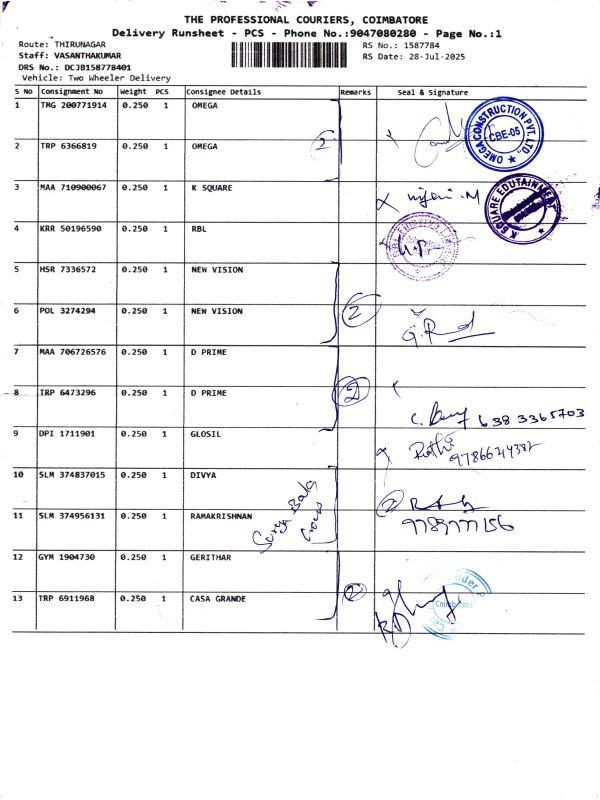 THE PROFESSIONAL COURIERS, COIMBATORE
Delivery Runsheet - PCS - Phone No.:9047080280 - Page No.:1
Route: THIRUNAGAR RS No.: 1587784
Staff: VASANTHAKUMAR RS Date: 28-Jul-2025
DRS No.: DCJB158778401
Vehicle: Two Wheeler Delivery
S No Consignment No Weight PCS Consignee Details Remarks Seal & Signature
1 TMG 200771914 0.250 1 OMEGA
OMEGA CONSTRUCTION PVT. LTD. CBE-05
2 TRP 6366819 0.250 1 OMEGA 2
3 MAA 710900067 0.250 1 K SQUARE
K SQUARE EDUTAINMENT
4 KRR 50196590 0.250 1 RBL
5 HSR 7336572 0.250 1 NEW VISION
6 POL 3274294 0.250 1 NEW VISION 2
7 MAA 706726576 0.250 1 D PRIME
8 TRP 6473296 0.250 1 D PRIME 2
6383365703
9 DPI 1711901 0.250 1 GLOSIL
10 SLM 374837015 0.250 1 DIVYA 2
11 SLM 374956131 0.250 1 RAMAKRISHNAN
12 GYM 1904730 0.250 1 GERITHAR
13 TRP 6911968 0.250 1 CASA GRANDE 2
Coimbatore